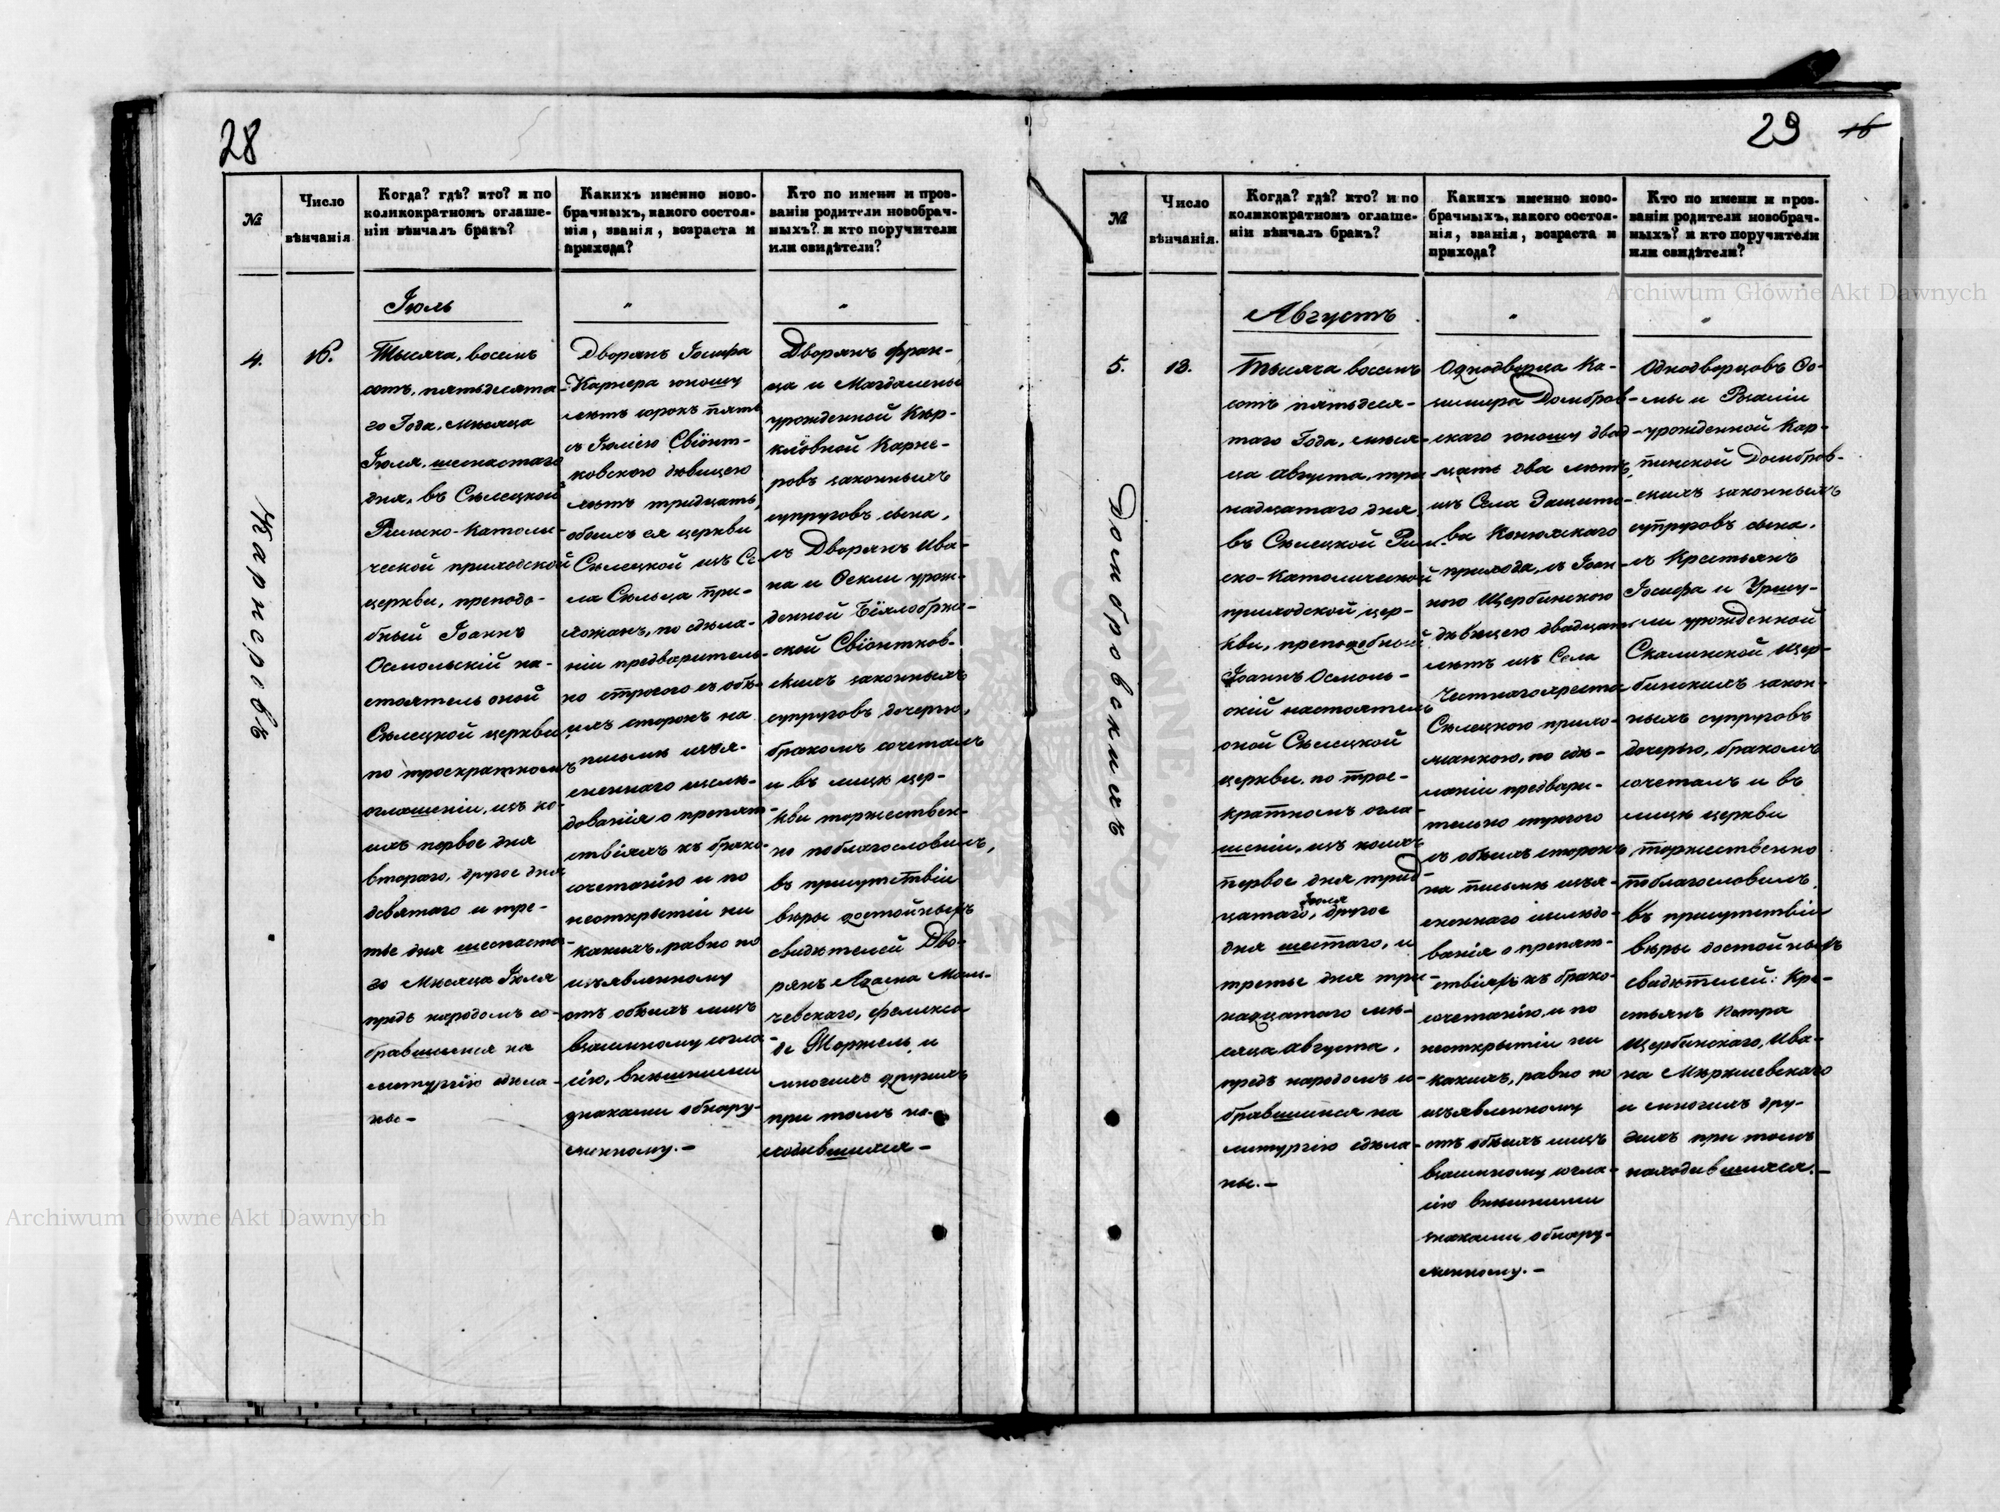 28
№
Число
вѣнчанія
Когда? гдѣ? кто? и по
коликократномъ оглаше-
ніи вѣнчалъ бракъ?
Какихъ именно ново-
брачныхъ, какого состоя-
нія, званія, возраста и
прихода?
Кто по имени и проз-
ваніи родители новобрач-
ныхъ? и кто поручители
или свидѣтели?
Іюль
"
"
4.
Карнеровъ
16.
Тысяча, восемь
сотъ, пятьдесята-
го Года, мѣсяца
Іюля, шеснастаго
дня, въ Сѣлецкой
Римско-Католи-
ческой приходской
церкви, преподо-
бный Іоаннъ
Осмольскій на-
стоятель оной
Сѣлецкой церкви
по троекратномъ
оглашеніи, изъ ко-
ихъ первое дня
втораго, другое дня
девятаго и тре-
тье дня шеснаста-
го Мѣсяца Іюля
предъ народомъ со-
бравшимся на
литургію сдѣла-
ны.-
Дворянъ Іосифа
Карнера юношу
лѣтъ сорокъ пять
съ Іюліею Свіонт-
ковскою дѣвицею
лѣтъ тридцать,
обоихъ ся церкви
Сѣлецкой изъ Се
ла Сѣльца при-
хожанъ, по сдѣла-
ніи предваритель-
но строгого съ обѣ-
ихъ сторонъ на
письмѣ изъя-
сненнаго изслѣ-
дованія о препят-
ствіяхъ къ брако-
сочетанію и по
неоткрытіи ни
какихъ, равно по
изъявленному
отъ обѣихъ лицъ
взаимному согла-
сію, внѣшними
знаками обнару-
женному.-
Дворянъ фран-
ца и Магдалены
урожденной Кѣр-
кловной Карне-
ровъ законныхъ
супруговъ сына,
съ Дворянъ Ива-
на и Феклы урож-
денной Бѣялобрже-
ской Свіонтков-
скихъ законныхъ
супруговъ дочерью,
бракомъ сочеталъ
и въ лицѣ цер-
кви торжествен-
но поблагословилъ,
въ присутствіи
вѣры достойныхъ
свидѣтелей Дво-
рянъ Адама Маль-
чевскаго, феликса
де Шоржель, и
многихъ другихъ
при томъ на-
ходившихся-
29
16
№
Число
вѣнчанія.
Когда? гдѣ? кто? и по
коликократномъ оглаше-
ніи вѣнчалъ бракъ?
Какихъ именно ново-
брачныхъ, какого состоя-
нія, званія, возраста и
прихода?
Кто по имени и проз-
ваніи родители новобрач-
ныхъ? и кто поручители
или свидѣтели?
Августъ
"
"
5.
Домбровскихъ
13.
Тысяча восемь
сотъ пятьдеся-
таго Года, мѣся-
ца августа, три
надцатаго дня
въ Сѣлецкой Рим-
ско-Католической
приходской цер-
кви, преподобный
Іоаннъ Осмоль-
скій настоятель
оной Сѣлецкой
церкви, по трое-
кратномъ огла-
шеніи, изъ коихъ
первое дня трид-
цатаго Іюля, другое
дня шестаго, и
третье дня три
надцатого мѣ-
сяца августа,
предъ народомъ со-
бравшимся на
литургію сдѣла-
ны.-
Однодворца Ка-
зимира Домбров-
скаго юношу двад-
цать два лѣтъ,
изъ Села Защито-
ва Конюхскаго
прихода, съ Іоан-
ною Щербинскою
дѣвицею двадцать
лѣтъ изъ Села
Честнаго креста
Сѣлецкою прихо-
жанкою, по сдѣ-
ланіи предвари-
тельно строгого
съ обѣихъ сторонъ
на письмѣ изъя-
сненнаго изслѣдо-
ванія о препят-
ствіяхъ къ брако-
сочетанію, и по
неоткрытіи ни
какихъ, равно по
изъявленному
отъ обѣихъ лицъ
взаимному согла-
сію внѣшними
знаками обнару-
женному.-
Однодворцовъ Фо-
мы и Розаліи
урожденной Кар-
пинской Домбров-
скихъ законныхъ
супруговъ сына,
съ Крестьянъ
Іосифа и Уршу-
ли урожденной
Скалинской Щер-
бинскихъ закон-
ныхъ супруговъ
дочерью, бракомъ
сочеталъ и въ
лицѣ церкви
торжественно
поблагословилъ,
въ присутствіи
вѣры достойныхъ
свидѣтелей: Кре-
стьянъ Петра
Щербинскаго, Ива-
на Мѣркиевскаго
и многихъ дру-
гихъ при томъ
находившихся.-
Archiwum Główne Akt Dawnych
Archiwum Główne Akt Dawnych